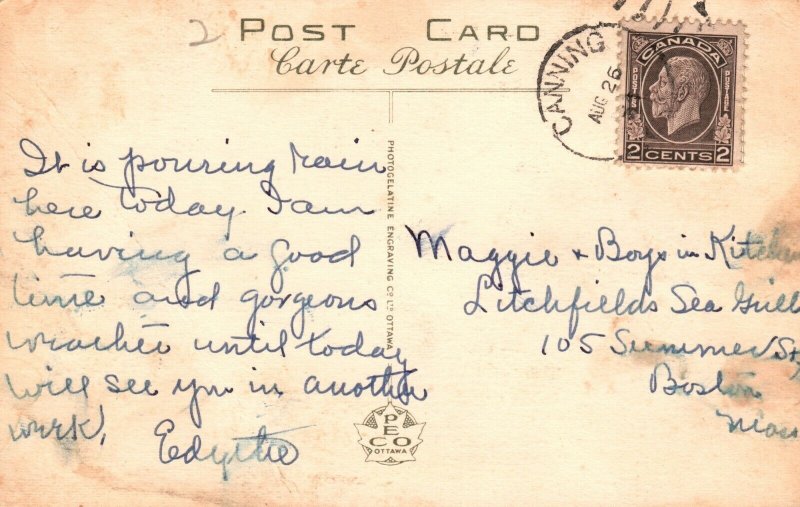 2
POST CARD
Carte Postale
CANNING
AUG 26
CANADA
POSTES POSTAGE
2 CENTS 2
It is pouring rain
here today. I am
having a good
time and gorgeous
weather until today
will see you in another
week!
Edythe
PHOTOGELATINE ENGRAVING CO. LTD. OTTAWA
PECO
OTTAWA
Maggie & Boys in Kitchen
Litchfields Sea Grill
105 Summer St
Boston
Mass